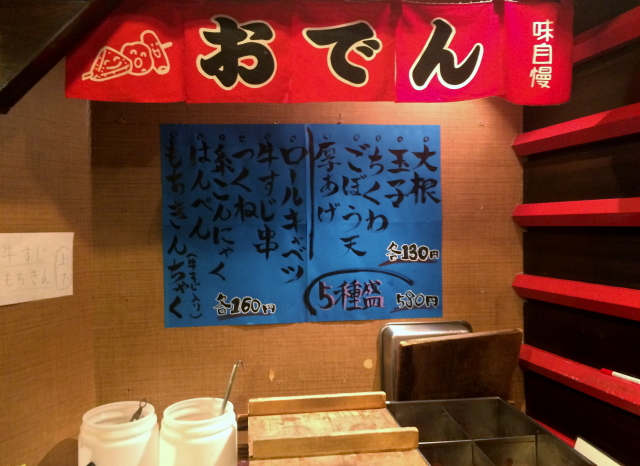 おでん
味自慢
大根
玉子
ちくわ
ごぼう天
厚あげ
各130円
5種盛
580円
ロールキャベツ
牛すじ串
つくね
糸こんにゃく
はんぺん
もちきんちゃく
(牛すじ入り)
各160円
牛すじ
もちきん